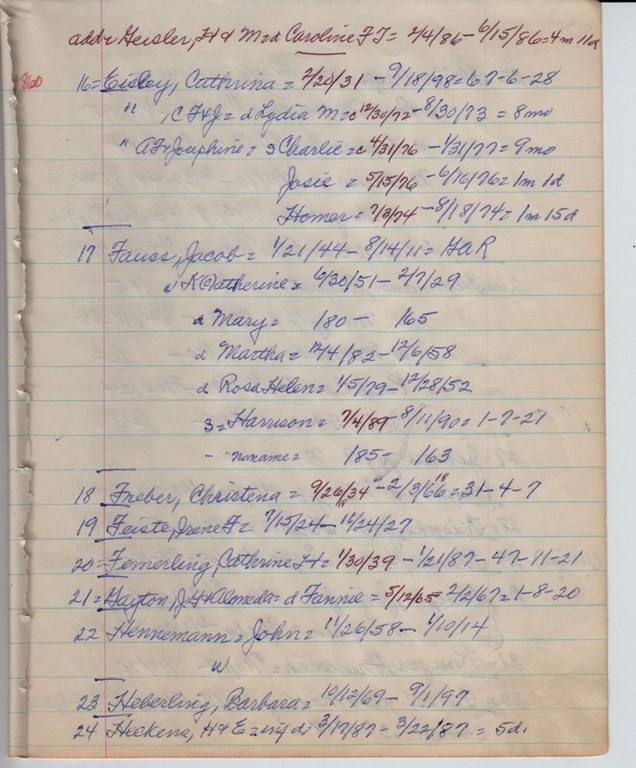 add= Geisler, H & M=d Caroline F J= 2/4/86 - 6/15/86=4m 11d
16= Eisley, Catherina = 2/20/31 - 9/18/98=67-6-28
" , C F&J= d Lydia M=c12/30/72 - 8/30/73 = 8mo
" A F & Josephine = s Charlie=c 4/31/76 - 1/31/77= 9mo
Josie = 5/15/76 - 6/16/76= 1m 1d
Homer= 7/3/74 - 8/18/74= 1m 15d
17 Fauss, Jacob = 1/21/44 - 8/14/11= GaR
w K(C)atherine= 6/30/51 - 2/7/29
d Mary= 180 - 165
d Martha= 12/4/82 - 12/6/58
d Rosa Helen= 1/5/79 - 12/28/52
s= Harrison= 7/4/89 - 8/11/90= 1-7-27
- "noname= 185 - 163
18 Freber, Christena = 9/26/34 - 2/3/66=31-4-7
19 Feiste, Irene F= 7/15/24 - 11/24/27
20= Femerling, Cathrine H= 1/30/39 - 1/21/87 - 47-11-21
21= Gayton, J H & Almeda= d Fannie = 5/12/65 - 2/2/67= 1-8-20
22 Hennemann = John= 11/26/58 - 1/10/14
w
23 Heberling, Barbara= 10/12/69 - 9/1/97
24 Heckens, H & E= inf d: 3/17/87 - 3/22/87 = 5d.